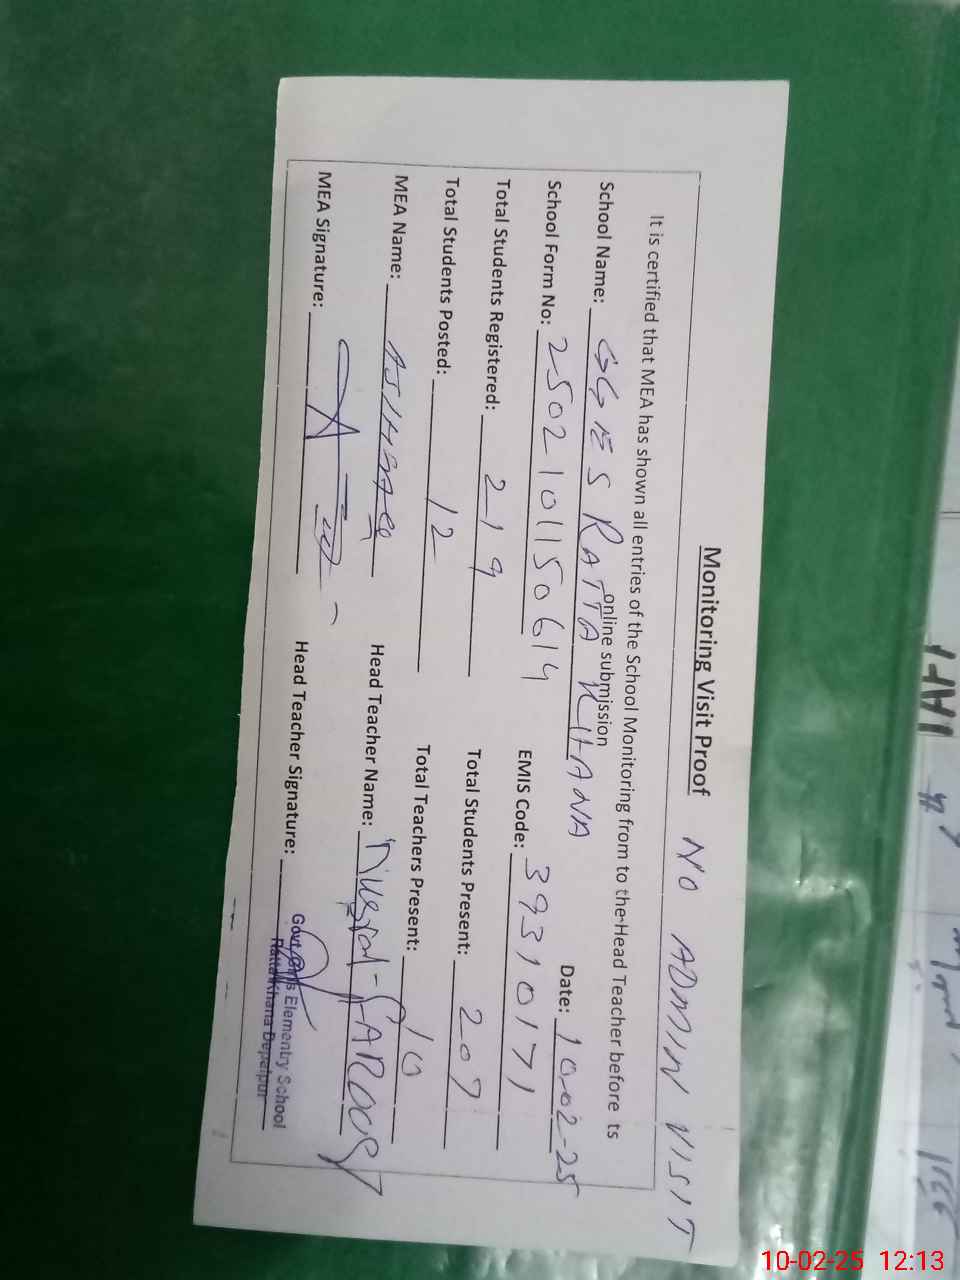 Monitoring Visit Proof NO ADMIN VISIT
It is certified that MEA has shown all entries of the School Monitoring from to the Head Teacher before ts
online submission
School Name: GGES RATTA KHANA Date: 10-02-25
School Form No: 2502101150614 EMIS Code: 39310171
Total Students Registered: 219 Total Students Present: 207
Total Students Posted: 12 Total Teachers Present: 10
MEA Name: Head Teacher Name:
MEA Signature: Head Teacher Signature:
Govt Girls Elementry School
Ratta Khana Depalpur
10-02-25 12:13